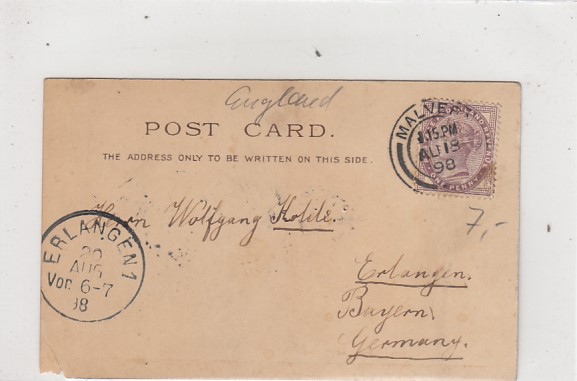 England
POST CARD.
THE ADDRESS ONLY TO BE WRITTEN ON THIS SIDE.
MALVERN
1.15.PM
AU 18
98
ONE PENNY
7,-
Herrn Wolfgang
Erlangen.
Bayern,
Germany.
ERLANGEN 1
20
AUG
Vor 6-7
98